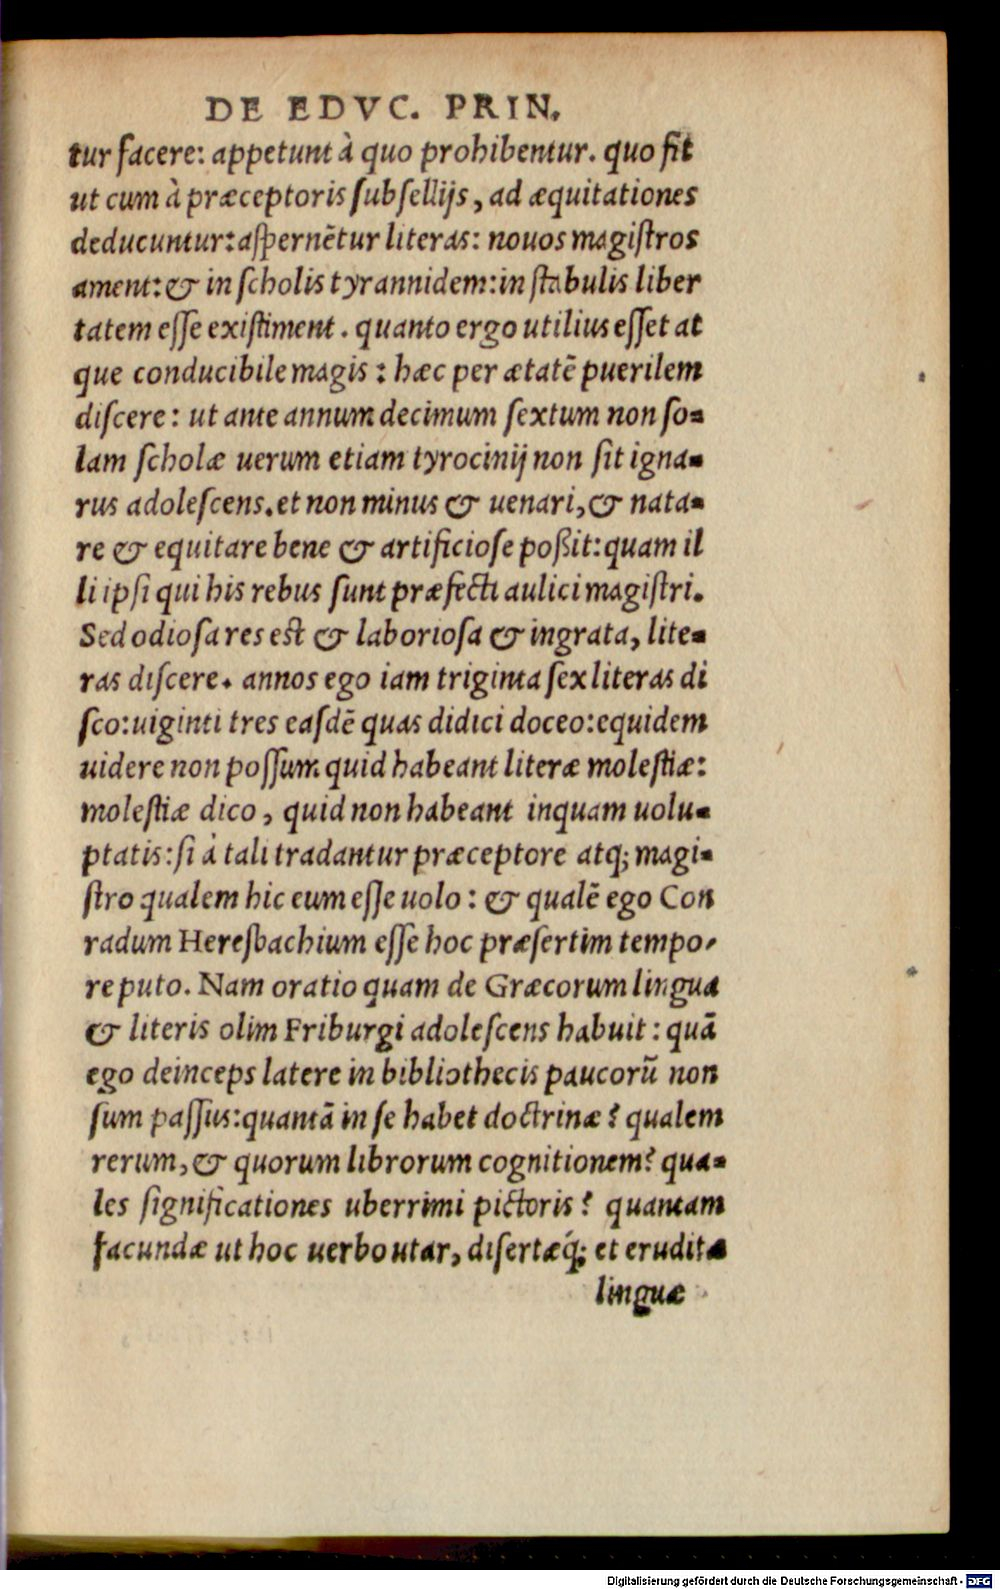 DE EDVC. PRIN.
tur facere: appetunt à quo prohibentur. quo fit
ut cum à præceptoris subsellijs, ad æquitationes
deducuntur: aspernẽtur literas: nouos magistros
ament: & in scholis tyrannidem: in stabulis liber
tatem esse existiment. quanto ergo utilius esset at
que conducibile magis: hæc per ætatẽ puerilem
discere: ut ante annum decimum sextum non so-
lam scholæ uerum etiam tyrocinij non sit igna-
rus adolescens. et non minus & uenari, & nata-
re & equitare bene & artificiose poßit: quam il
li ipsi qui his rebus sunt præfecti aulici magistri.
Sed odiosa res est & laboriosa & ingrata, lite-
ras discere. annos ego iam triginta sex literas di
sco: uiginti tres easdẽ quas didici doceo: equidem
uidere non possum quid habeant literæ molestiæ:
molestiæ dico, quid non habeant inquam uolu-
ptatis: si à tali tradantur præceptore atq; magi-
stro qualem hic eum esse uolo: & qualẽ ego Con
radum Heresbachium esse hoc præsertim tempo-
re puto. Nam oratio quam de Græcorum lingua
& literis olim Friburgi adolescens habuit: quã
ego deinceps latere in bibliothecis paucorũ non
sum passus: quantã in se habet doctrinæ? qualem
rerum, & quorum librorum cognitionem? qua-
les significationes uberrimi pictoris? quantam
facundæ ut hoc uerbo utar, disertæq́; et eruditæ
linguæ
Digitalisierung gefördert durch die Deutsche Forschungsgemeinschaft - DFG